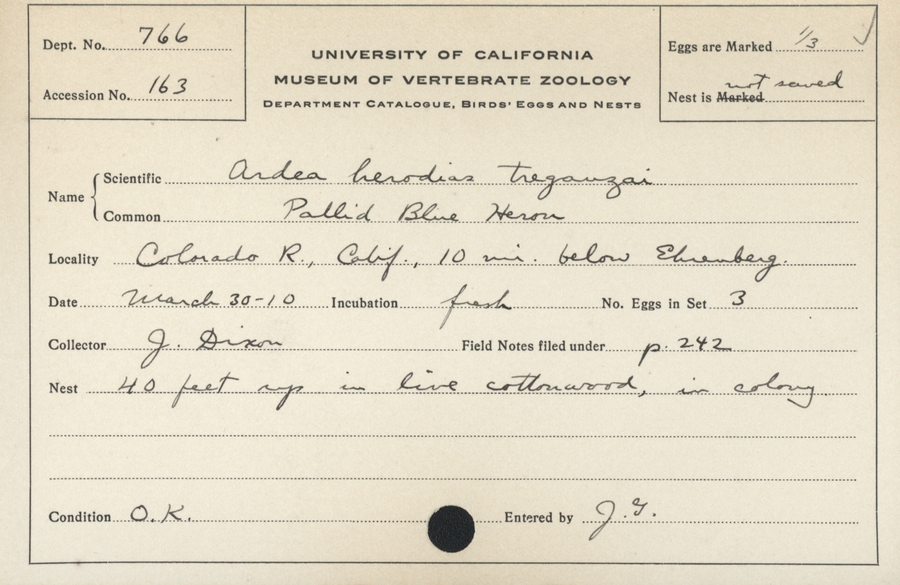 Dept. No. 766
Accession No. 163
UNIVERSITY OF CALIFORNIA
MUSEUM OF VERTEBRATE ZOOLOGY
DEPARTMENT CATALOGUE, BIRDS' EGGS AND NESTS
Eggs are Marked 1/3
not saved
Nest is Marked
Name
Scientific Ardea herodias treganzai
Common Pallid Blue Heron
Locality Colorado R., Calif., 10 mi. below Ehrenberg.
Date March 30-10 Incubation fresh No. Eggs in Set 3
Collector J. Dixon Field Notes filed under p. 242
Nest 40 feet up in live cottonwood, in colony
Condition O.K. Entered by J.G.